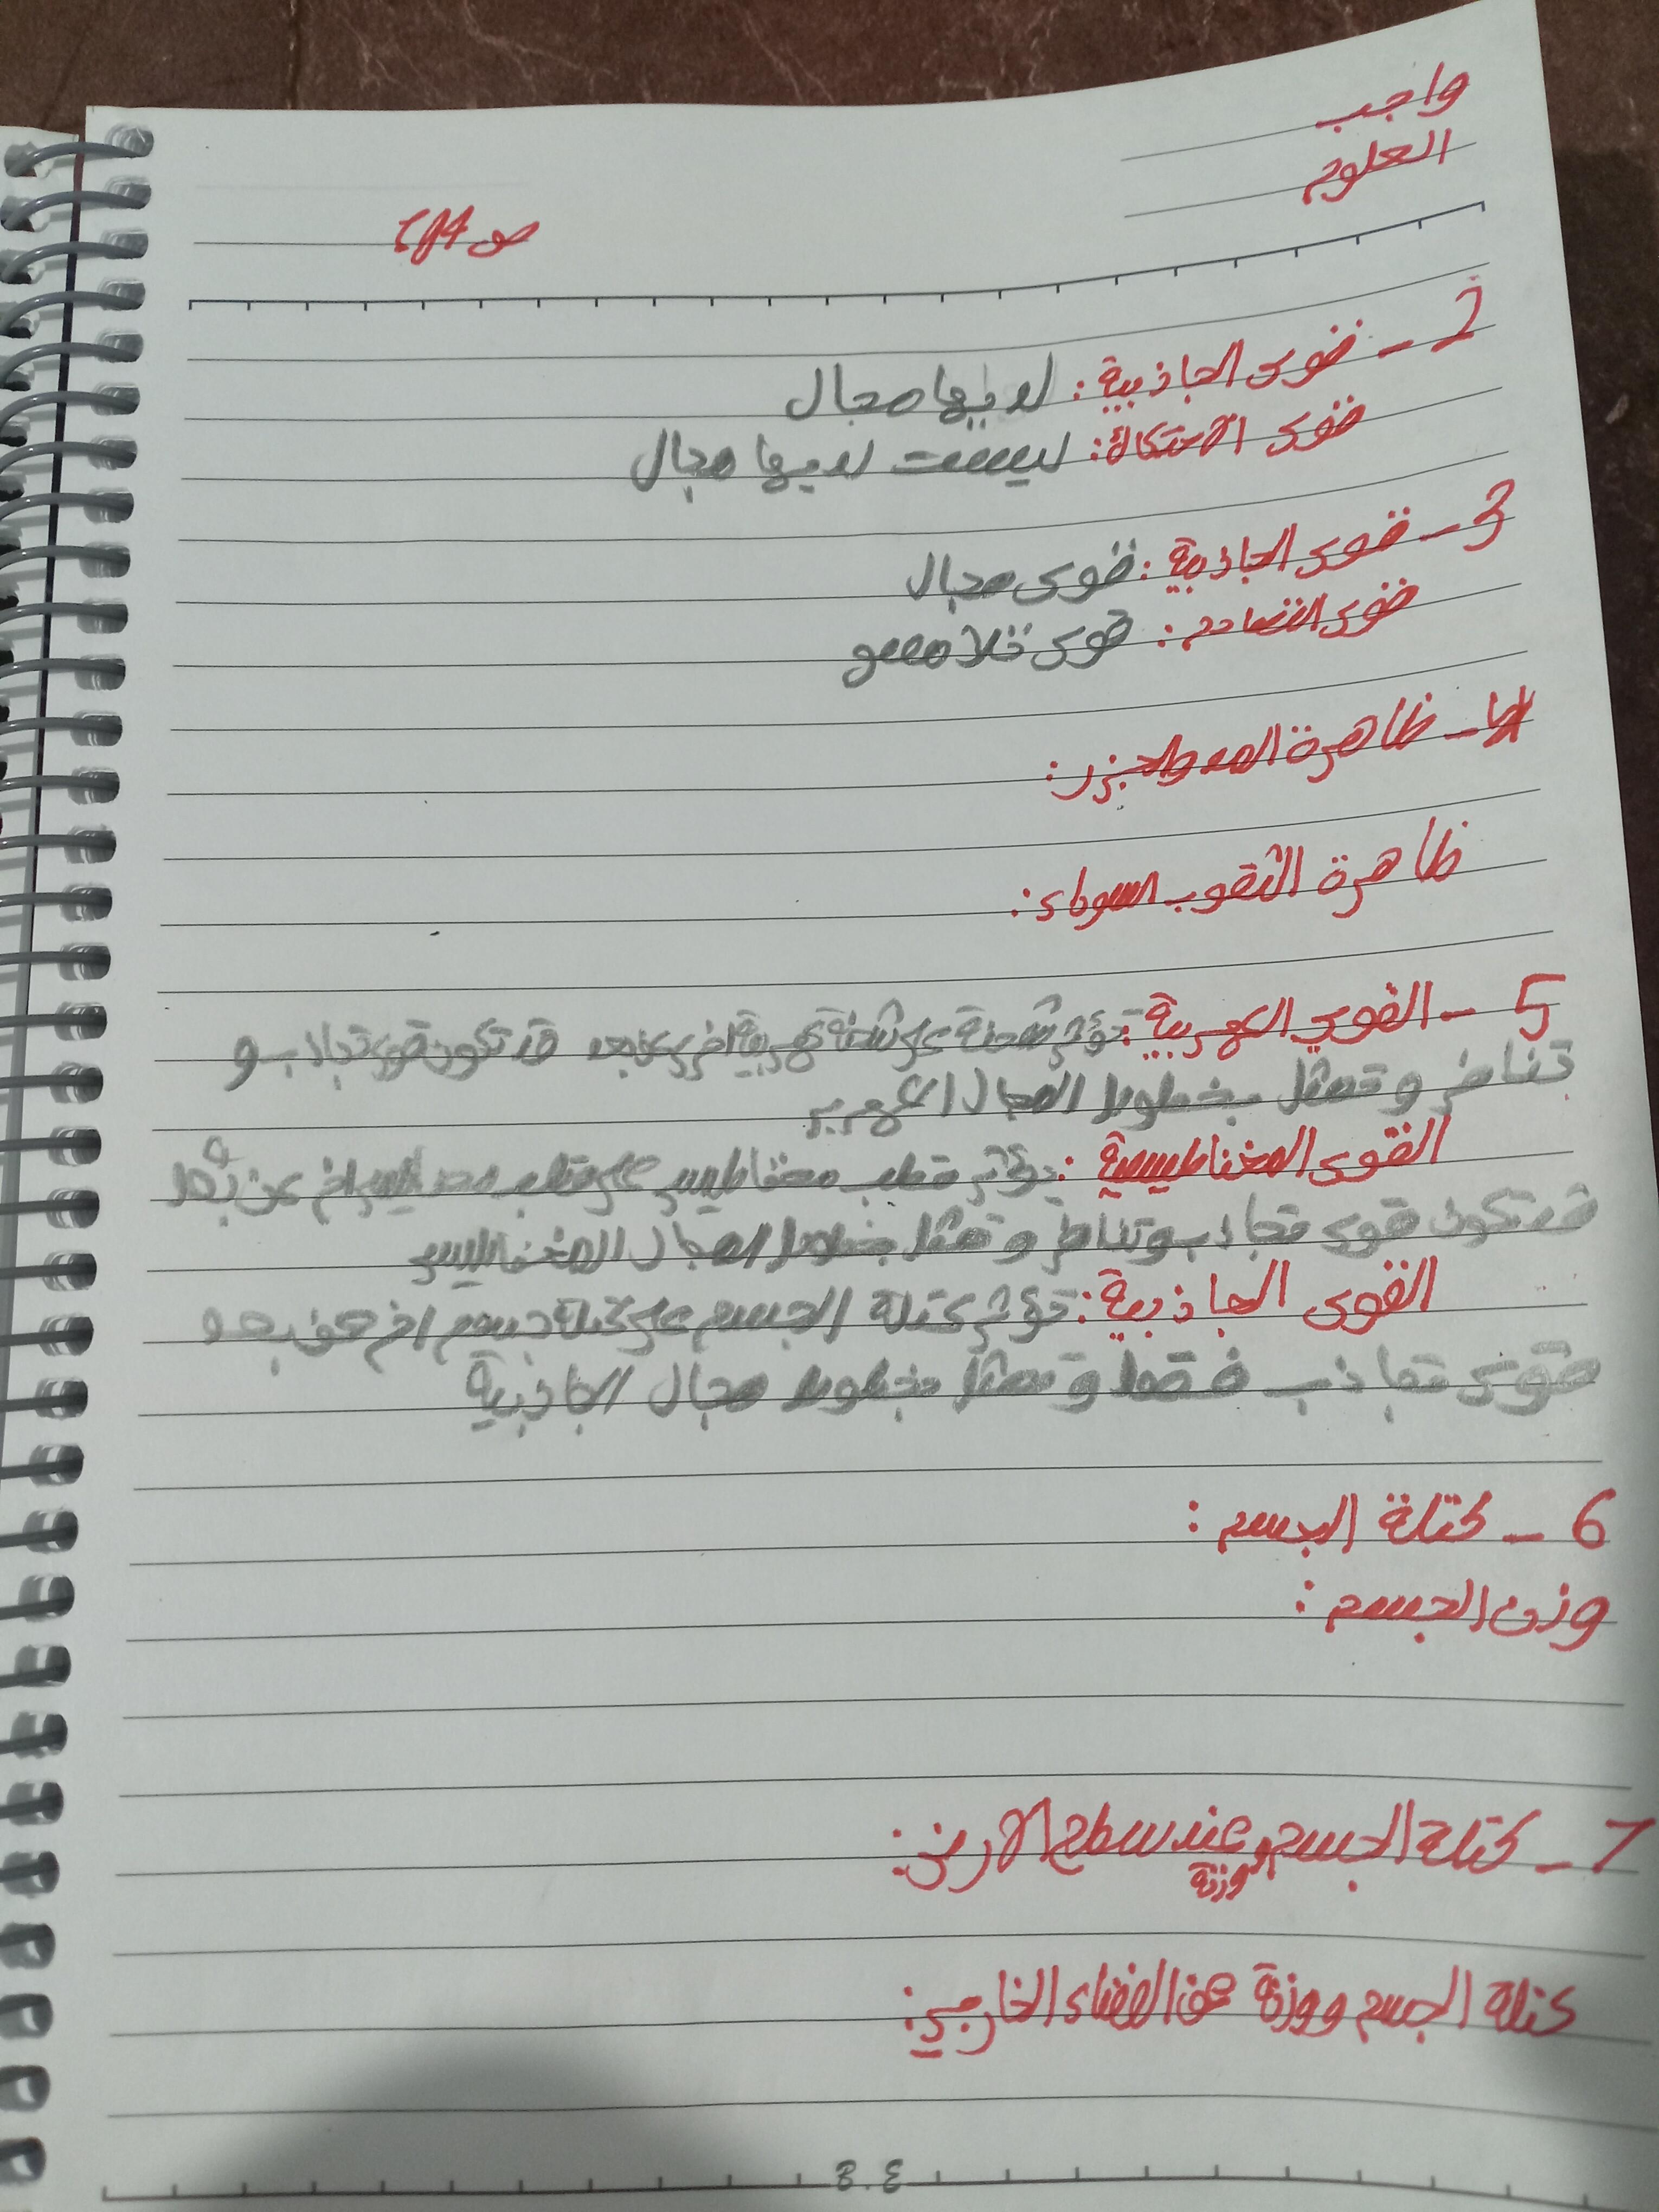 واجب
العلوم
ص
2 - قوى الجاذبية: لديها مجال
قوى الاحتكاك: ليست لديها مجال
3 - قوى الجاذبية: قوى مجال
قوى التصادم: قوى تلامس
4 - ظاهرة المد والجزر:
ظاهرة الثقوب السوداء:
5 - القوى الكهربية: تؤثر شحنة على شحنة كهربية اخرى عن بعد قد تكون قوى تجاذب و
تنافر وتمثل بخطوط المجال الكهربي
القوى المغناطيسية: يؤثر قطب مغناطيسي على قطب مغناطيسي اخر عن بعد
قد تكون قوى تجاذب وتنافر وتمثل بخطوط المجال المغناطيسي
القوى الجاذبية: تؤثر كتلة الجسم على كتلة جسم اخر عن بعد
قوى تجاذب فقط وتمثل بخطوط مجال الجاذبية
6 - كتلة الجسم:
وزن الجسم:
7 - كتلة الجسم ووزنة عند سطح الارض:
كتلة الجسم ووزنة عن الفضاء الخارجي:
B.E